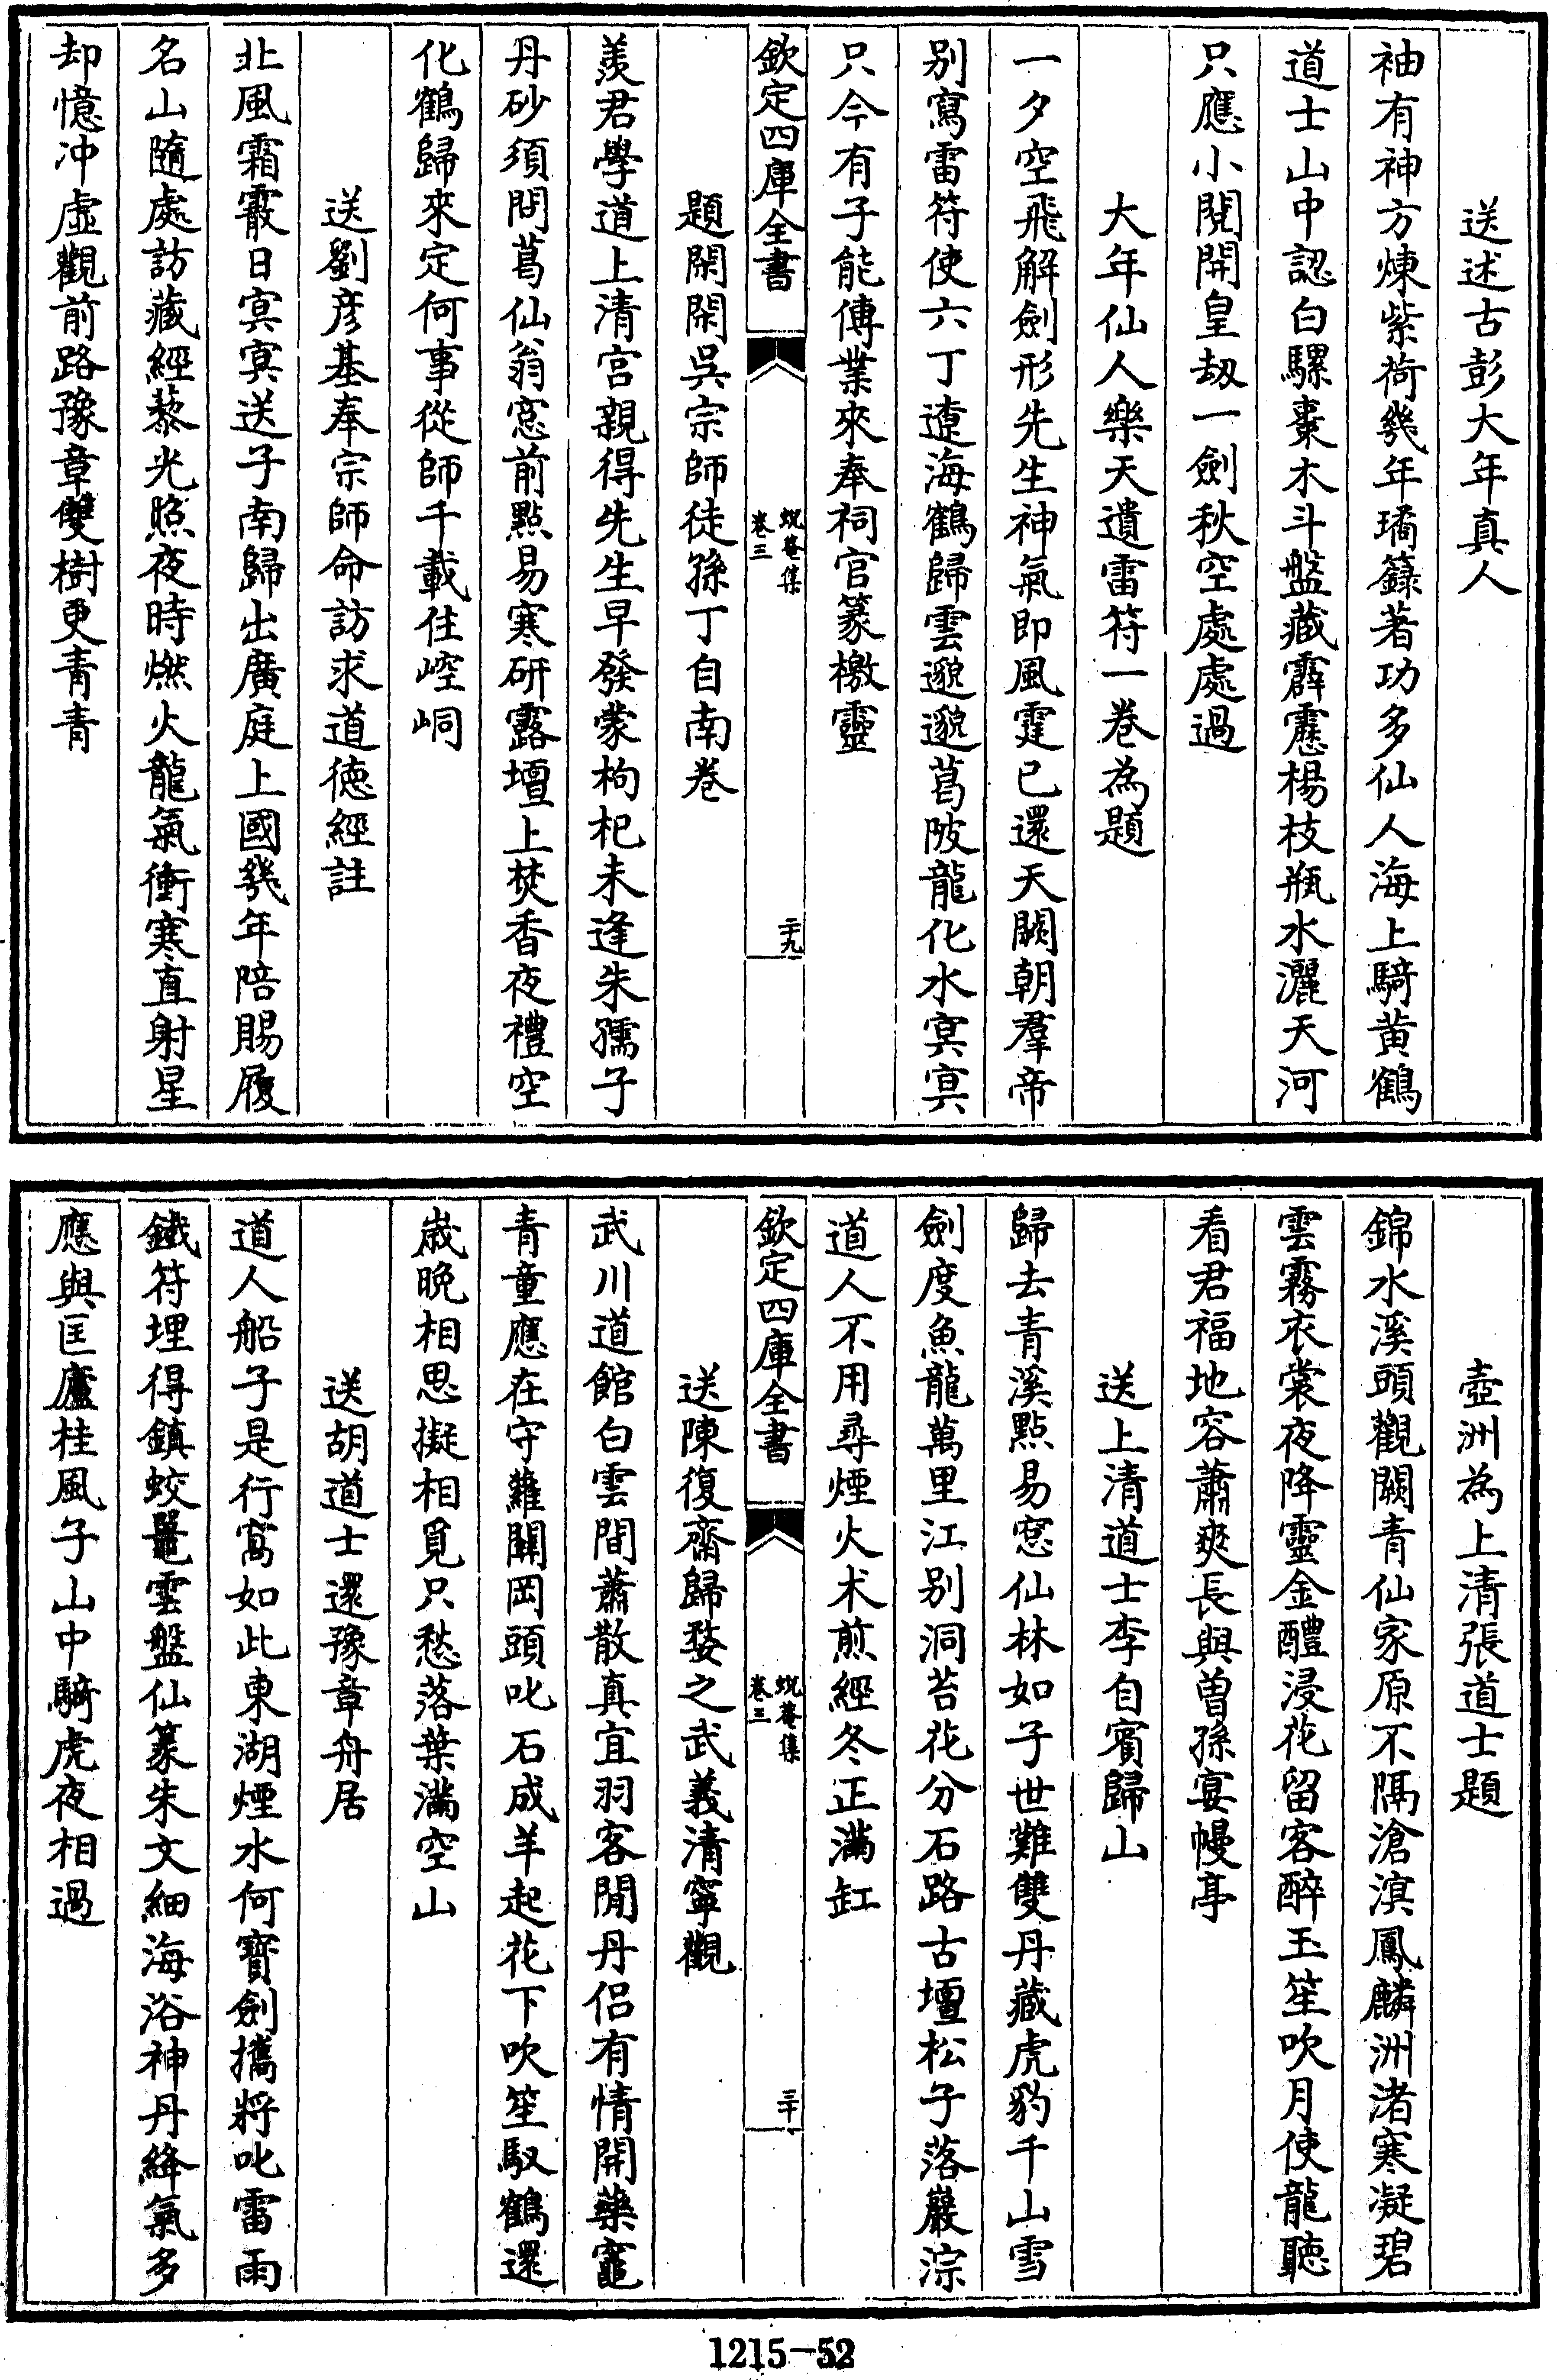 送述古彭大年真人
袖有神方煉紫荷幾年璚籙著功多仙人海上騎黄鶴
道士山中認白騾棗木斗盤藏霹靂楊枝瓶水灑天河
只應小閱開皇刼一劍秋空處處過
大年仙人樂天遺雷符一卷為題
一夕空飛解劍形先生神氣即風霆已還天闕朝羣帝
别寫雷符使六丁遼海鶴歸雲邈邈葛陂龍化水㝠㝠
只今有子能傳業來奉祠官篆檄靈
欽定四庫全書
蛻菴集
卷三
二十九
題閑閑吳宗師徒孫丁自南卷
羨君學道上清宫親得先生早發蒙枸杞未逢朱孺子
丹砂須問葛仙翁窓前點易寒研露壇上焚香夜禮空
化鶴歸來定何事從師千載住崆峒
送劉彦基奉宗師命訪求道徳經註
北風霜霰日㝠㝠送子南歸出廣庭上國幾年陪賜履
名山隨處訪藏經藜光照夜時燃火龍氣衝寒直射星
却憶冲虚觀前路豫章雙樹更青青
壺洲為上清張道士題
錦水溪頭觀闕青仙家原不隔滄溟鳳麟洲渚寒凝碧
雲霧衣裳夜降靈金醴浸花留客醉玉笙吹月使龍聽
看君福地容蕭爽長與曽孫宴幔亭
送上清道士李自賓歸山
歸去青溪點易窓仙林如子世難雙丹藏虎豹千山雪
劍度魚龍萬里江别洞苔花分石路古壇松子落巖淙
道人不用尋煙火术煎經冬正滿缸
欽定四庫全書
蛻菴集
卷三
三十
送陳復齋歸婺之武義清寧觀
武川道館白雲間蕭散真宜羽客閒丹侣有情開藥竈
青童應在守蘿關岡頭叱石成羊起花下吹笙馭鶴還
嵗晚相思擬相覓只愁落葉滿空山
送胡道士還豫章舟居
道人船子是行窩如此東湖煙水何寳劍攜將叱雷雨
鐵符埋得鎮蛟鼉雲盤仙篆朱文細海浴神丹絳氣多
應與匡廬桂風子山中騎虎夜相過
1215-52